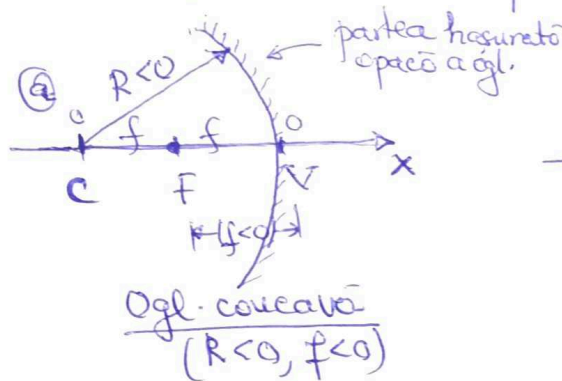 partea hașurată
opacă a ogl.
(a)
R<0
o
f f
o
C F V x
(f<0)
Ogl. concavă
(R<0, f<0)